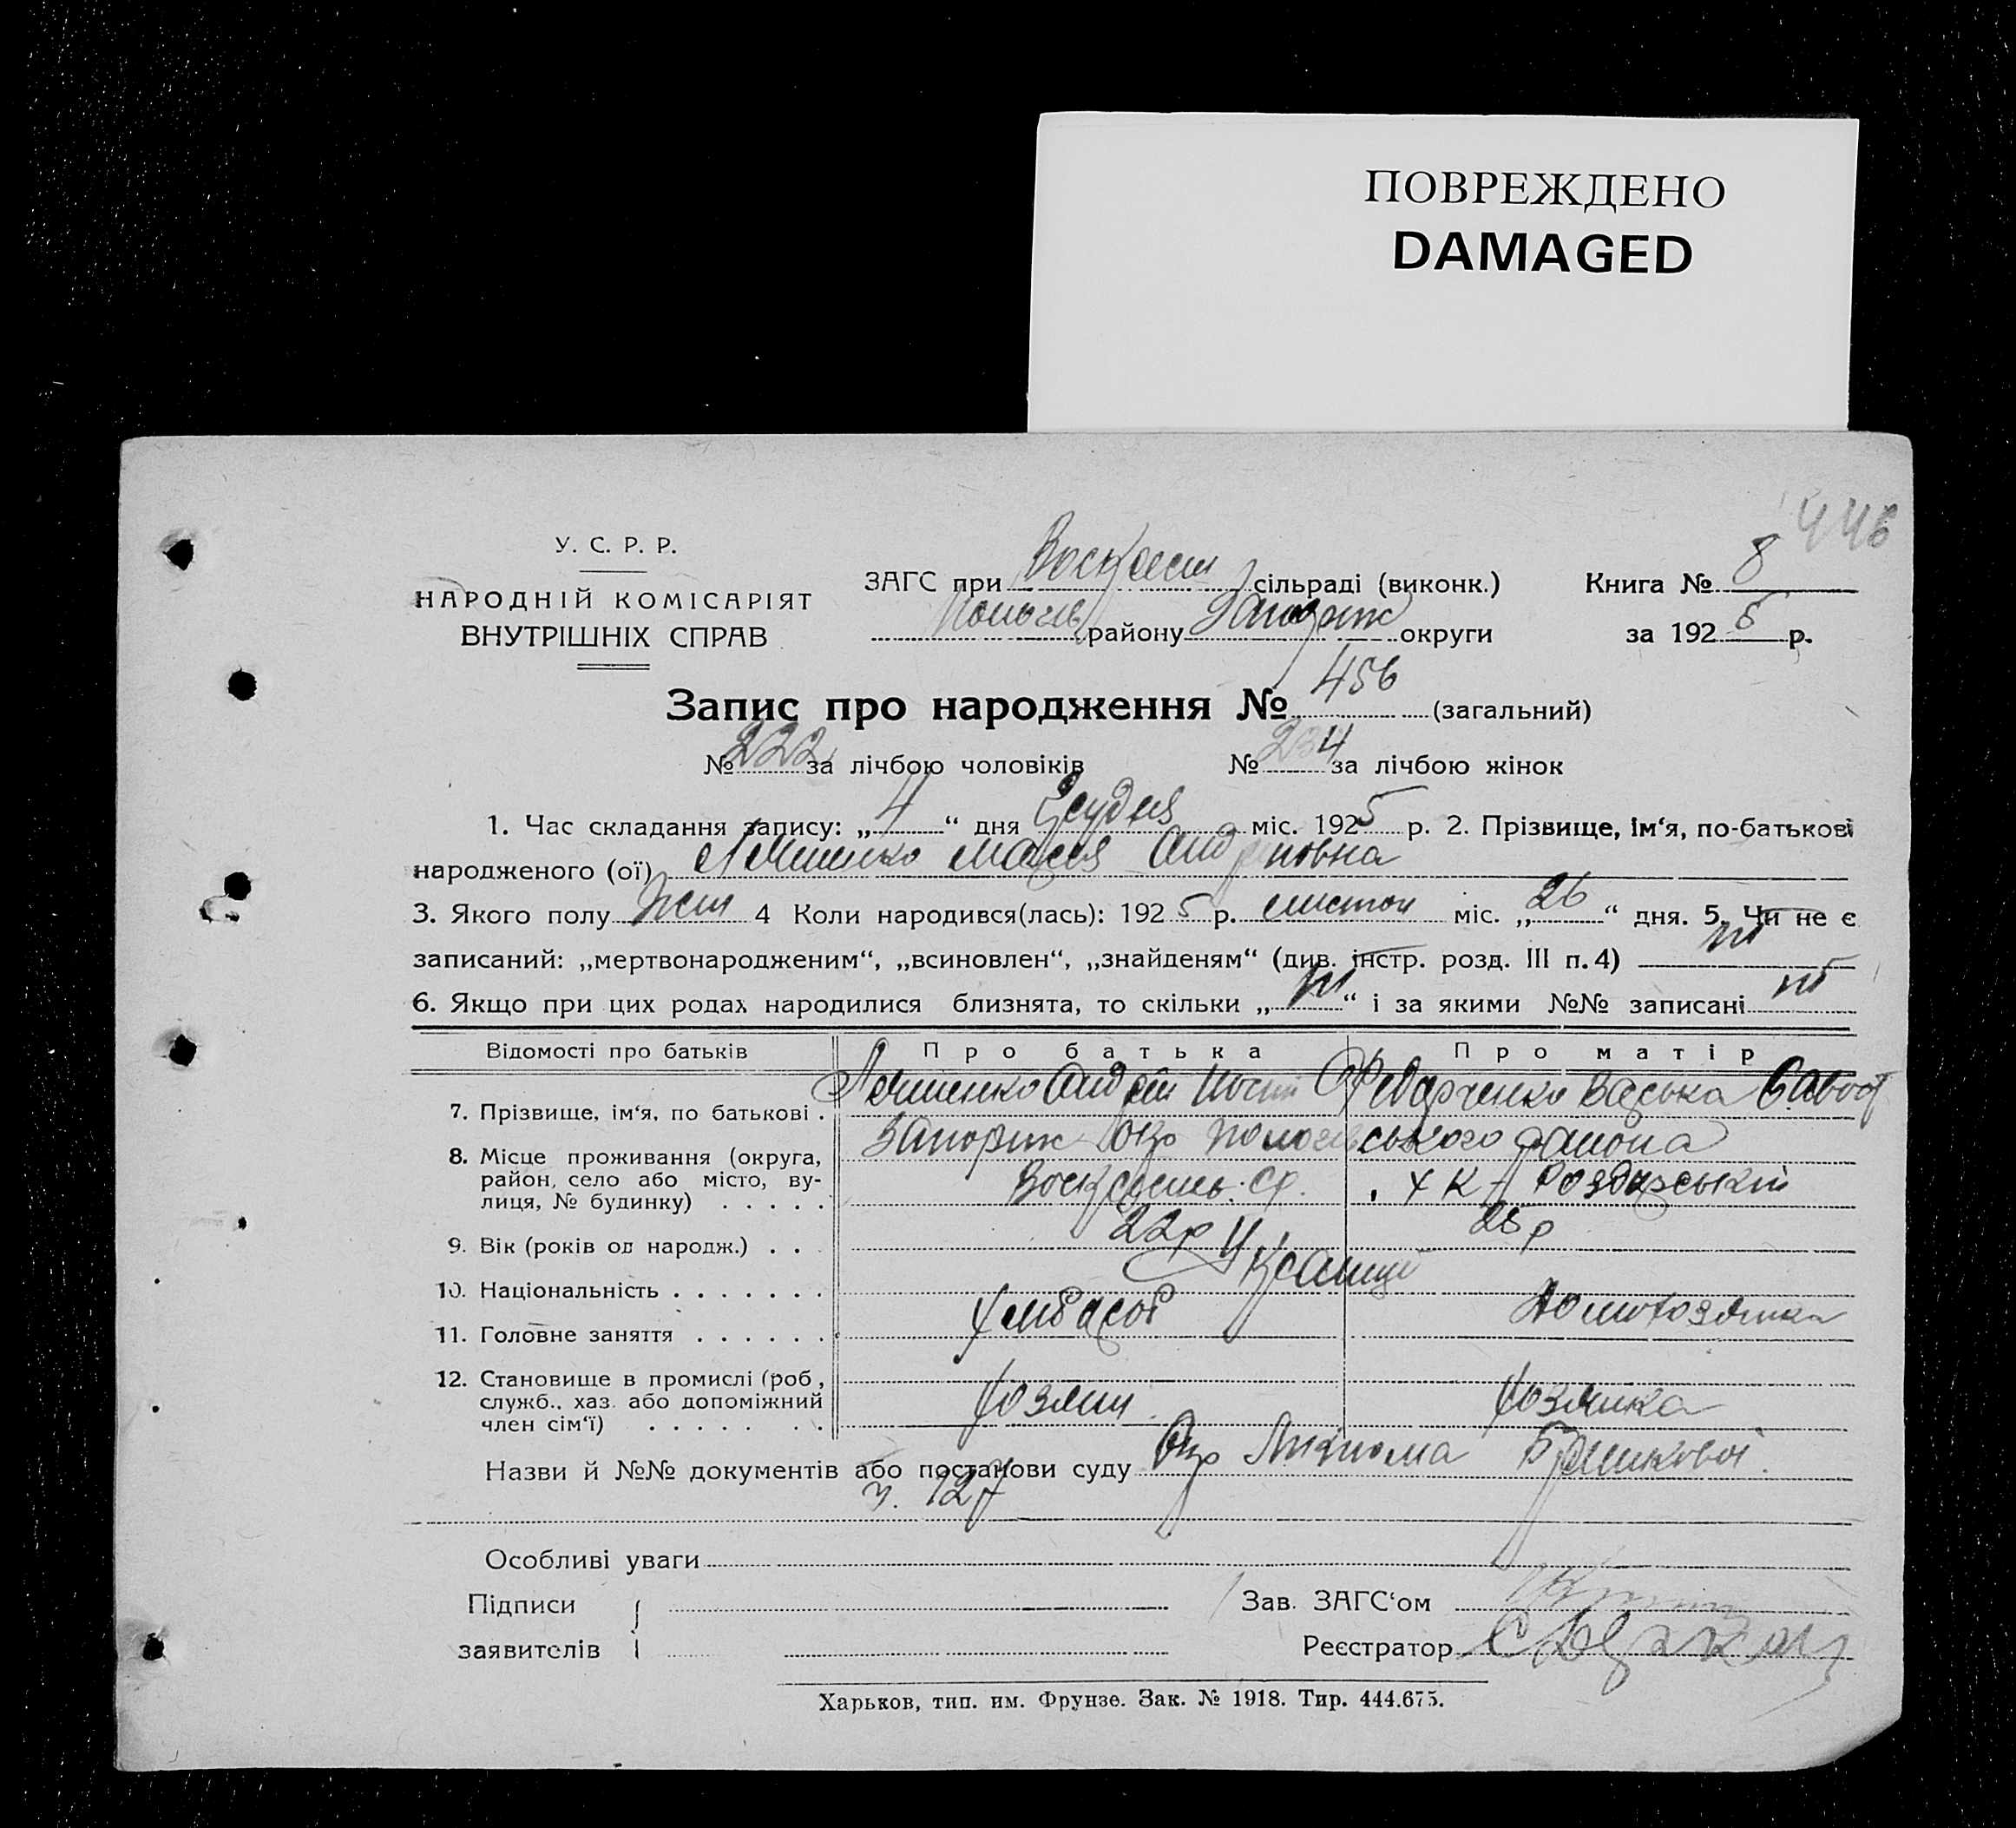 ПОВРЕЖДЕНО
DAMAGED
446
У. С. Р. Р.
НАРОДНІЙ КОМІСАРІЯТ
ВНУТРІШНІХ СПРАВ
ЗАГС при Воскресен сільраді (виконк.) Книга № 8
Пологів району Запоріж округи за 1925 р.
Запис про народження № 456 (загальний)
№ 222 за лічбою чоловіків № 234 за лічбою жінок
1. Час складання запису: „4“ дня Грудня міс. 1925 р. 2. Прізвище, ім‘я, по-батькові
народженого (ої) Марія Андріповна
3. Якого полу Жен 4 Коли народився(лась): 1925 р. листоп міс. „26“ дня. 5. Чи не є
записаний: „мертвонародженим“, „всиновлен“, „знайденям“ (див. інстр. розд. III п. 4) ні
6. Якщо при цих родах народилися близнята, то скільки „ні“ і за якими №№ записані ні
Відомості про батьків Про батька Про матір
7. Прізвище, ім‘я, по батькові . Андрій
8. Місце проживання (округа, Запоріж окр Пологівського района
район, село або місто, ву-
лиця, № будинку) . . . . . Воскресень.
9. Вік (років од народж.) . . 22р 25р
10. Національність . . . . . . . Українці
11. Головне заняття . . . . . . Хлібароб Домохозяйка
12. Становище в промислі (роб.,
служб., хаз. або допоміжний Хозяин Хозяйка
член сім‘ї) . . . . . . .
Назви й №№ документів або постанови суду
ч. 127
Особливі уваги
Підписи Зав. ЗАГС‘ом
заявителів Реєстратор
Харьков, тип. им. Фрунзе. Зак. № 1918. Тир. 444.675.